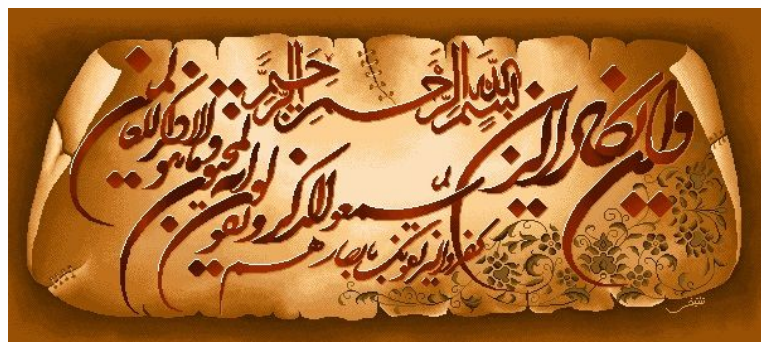 بِسْمِ اللهِ الرَّحْمنِ الرَّحِيمِ
وان يكاد الذين
كفروا ليزلقونك بابصارهم
لما سمعوا الذكر و يقولون
انه لمجنون
وما هو الا ذكر للعالمين